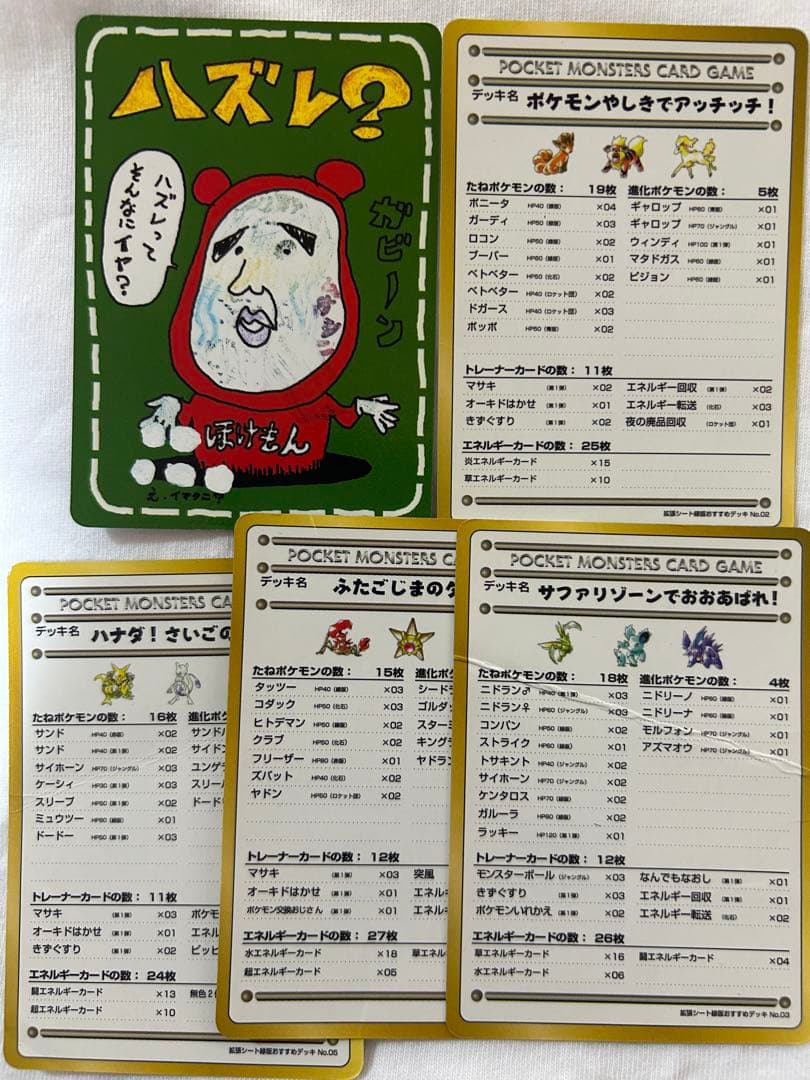 ハズレ?
ハズレって
そんなにイヤ?
ガビーン
ほけもん
え・イマクニ?
POCKET MONSTERS CARD GAME
デッキ名 ポケモンやしきでアッチッチ!
たねポケモンの数: 19枚 進化ポケモンの数: 5枚
ポニータ HP40 (緑版) ×04 ギャロップ HP60 (青版) ×01
ガーディ HP50 (緑版) ×03 ギャロップ HP70 (ジャングル) ×01
ロコン HP50 (緑版) ×02 ウィンディ HP100 (第1弾) ×01
ブーバー HP60 (緑版) ×01 マタドガス HP60 (緑版) ×01
ベトベター HP50 (化石) ×02 ピジョン HP60 (緑版) ×01
ベトベター HP40 (ロケット団) ×02
ドガース HP40 (ロケット団) ×03
ポッポ HP50 (青版) ×02
トレーナーカードの数: 11枚
マサキ (第1弾) ×02 エネルギー回収 (第1弾) ×02
オーキドはかせ (第1弾) ×01 エネルギー転送 (化石) ×03
きずぐすり (第1弾) ×02 夜の廃品回収 (ロケット団) ×01
エネルギーカードの数: 25枚
炎エネルギーカード ×15
草エネルギーカード ×10
拡張シート緑版おすすめデッキ No.02
POCKET MONSTERS CA
デッキ名 ハナダ!さいごの
たねポケモンの数: 16枚 進化ポケモ
サンド HP40 ×02 サンドパ
サンド HP40 (第1弾) ×02 サイドン
サイホーン HP70 (ジャングル) ×03 ユンゲラ
ケーシィ HP30 (第1弾) ×03 スリーパ
スリープ HP50 (第1弾) ×02 ドードリ
ミュウツー HP60 (緑版) ×01
ドードー HP50 (第1弾) ×03
トレーナーカードの数: 11枚
マサキ (第1弾) ×03 ポケモ
オーキドはかせ (第1弾) ×01 エネル
きずぐすり (第1弾) ×02 ピッピ
エネルギーカードの数: 24枚
闘エネルギーカード ×13 無色2
超エネルギーカード ×10
拡張シート緑版おすすめデッキ No.05
POCKET MONSTERS CA
デッキ名 ふたごじまの
たねポケモンの数: 15枚 進化ポケ
タッツー HP40 (緑版) ×03 シードラ
コダック HP50 (化石) ×03 ゴルダッ
ヒトデマン HP50 (緑版) ×02 スターミ
クラブ HP50 (化石) ×02 キングラ
フリーザー HP80 (赤版) ×01 ヤドラン
ズバット HP40 (化石) ×02
ヤドン HP50 (ロケット団) ×02
トレーナーカードの数: 12枚
マサキ (第1弾) ×03 突風
オーキドはかせ (第1弾) ×01 エネル
ポケモン交換おじさん (第1弾) ×01 エネル
エネルギーカードの数: 27枚
水エネルギーカード ×18 草エネル
超エネルギーカード ×05
POCKET MONSTERS CARD GAME
デッキ名 サファリゾーンでおおあばれ!
たねポケモンの数: 18枚 進化ポケモンの数: 4枚
ニドラン♂ HP40 (第1弾) ×03 ニドリーノ HP60 (緑版) ×01
ニドラン♀ HP60 (ジャングル) ×03 ニドリーナ HP60 (緑版) ×01
コンパン HP50 (緑版) ×02 モルフォン HP70 (ジャングル) ×01
ストライク HP60 (緑版) ×01 アズマオウ HP70 (ジャングル) ×01
トサキント HP40 (ジャングル) ×02
サイホーン HP70 (ジャングル) ×02
ケンタロス HP70 (緑版) ×02
ガルーラ HP60 (緑版) ×02
ラッキー HP120 (第1弾) ×01
トレーナーカードの数: 12枚
モンスターボール (ジャングル) ×03 なんでもなおし (第1弾) ×01
きずぐすり (第1弾) ×03 エネルギー回収 (第1弾) ×01
ポケモンいれかえ (第1弾) ×02 エネルギー転送 (化石) ×02
エネルギーカードの数: 26枚
草エネルギーカード ×16 闘エネルギーカード ×04
水エネルギーカード ×06
拡張シート緑版おすすめデッキ No.03